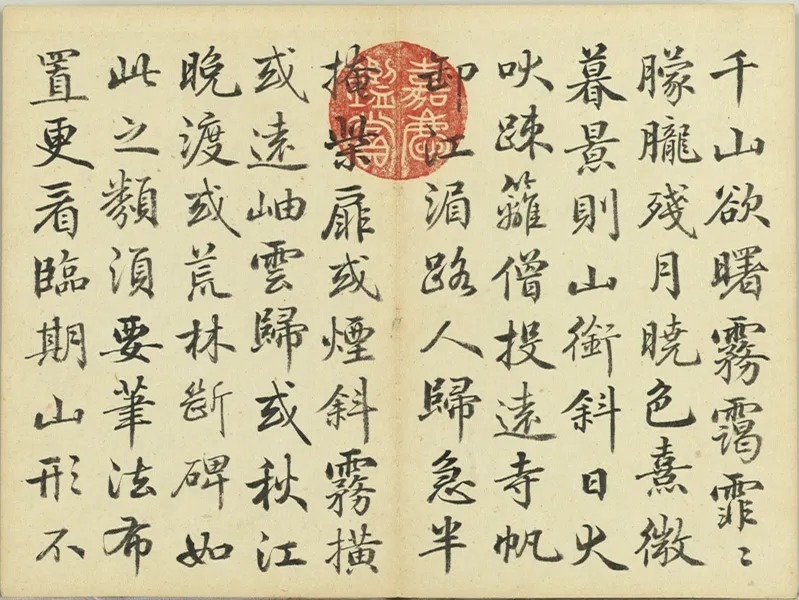 千山欲曙霧靄霏〻
朦朧殘月曉色熹微
暮景則山銜斜日犬
吠疎籬僧投遠寺帆
卸江湄路人歸急半
掩柴扉或煙斜霧橫
或遠岫雲歸或秋江
晚渡或荒林断碑如
此之類須要筆法布
置更看臨期山形不
嘉慶
鑑賞